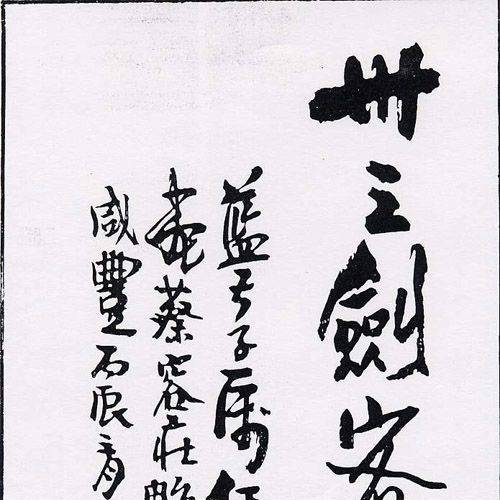 卅三劍客
藍子属任
畫蔡容莊
咸豐丙辰